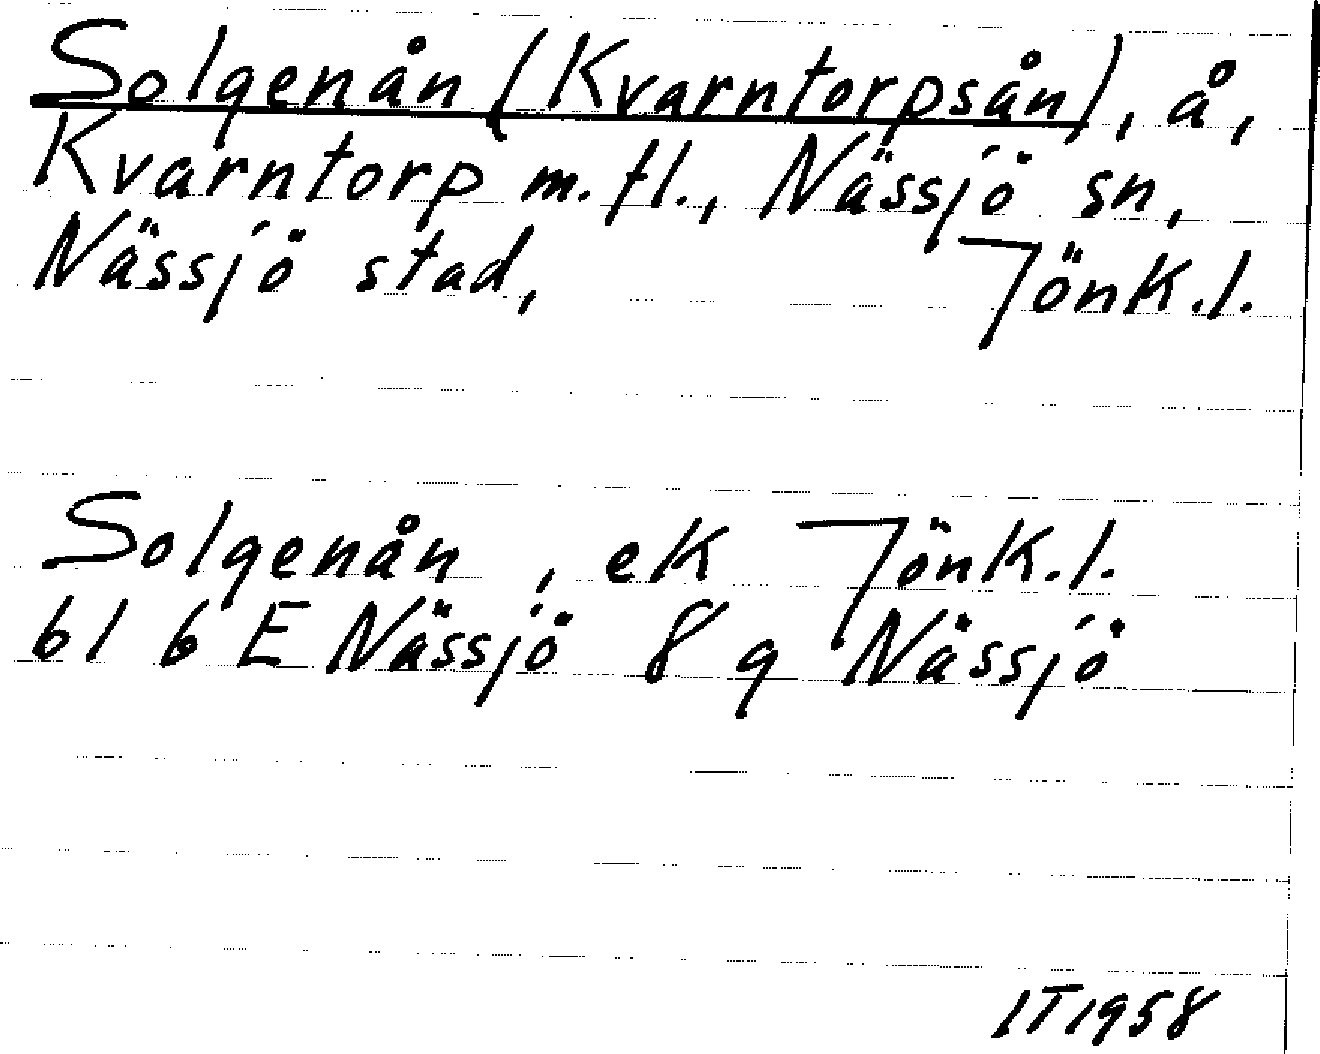 Solgenån (Kvarntorpsån), å,
Kvarntorp m.fl., Nässjö sn,
Nässjö stad, Jönk.l.
Solgenån, ek Jönk.l.
bl 6 E Nässjö 8 g Nässjö
IT1958